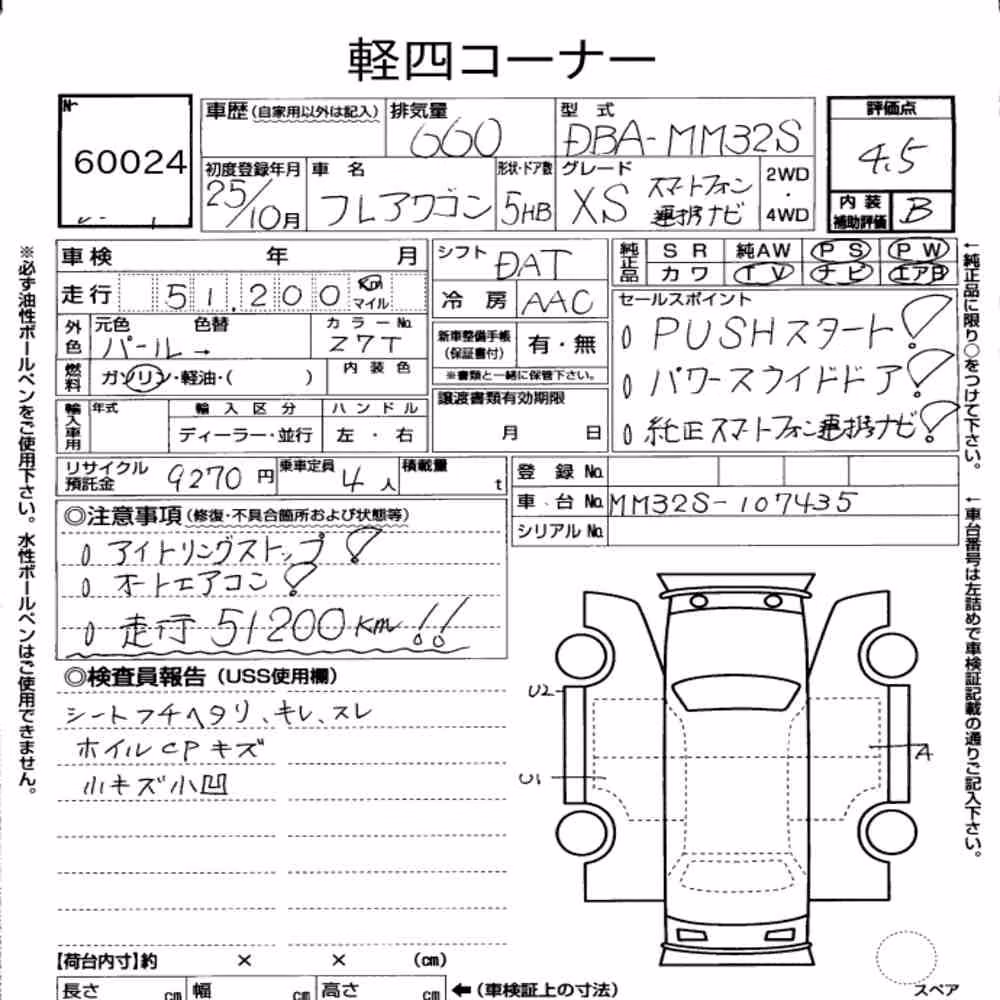 軽四コーナー
No.
60024
車歴(自家用以外は記入)
排気量
660
型 式
DBA-MM32S
評価点
4.5
初度登録年月
25/10月
車 名
フレアワゴン
形状・ドア数
5HB
グレード
XS スマートフォン連携ナビ
2WD
・
4WD
内 装
補助評価
B
車検 年 月
シフト
DAT
純正品
S R 純AW P S P W
カワ T V ナビ エアB
走行 51,200 Km
マイル
冷 房 AAC
セールスポイント
PUSHスタート!
パワースライドドア!
純正スマートフォン連携ナビ!
外色
元色 色替
パール→
カラーNo.
Z7T
新車整備手帳
(保証書付)
有・無
※書類と一緒に保管下さい。
燃料
ガソリン・軽油・( )
内 装 色
譲渡書類有効期限
月 日
輸入車用
年式
輸 入 区 分
ハ ン ド ル
ディーラー・並行
左 ・ 右
リサイクル
預託金
9270 円
乗車定員
4 人
積載量
t
登 録 No.
車 台 No.
MM32S-107435
シリアル No.
◎注意事項(修復・不具合箇所および状態等)
アイドリングストップ!
オートエアコン!
走行 51200km!!
◎検査員報告(USS使用欄)
シートフチヘタリ、キレ、スレ
ホイルCPキズ
小キズ小凹
U2
U1
A
【荷台内寸】約 × × (cm)
長さ cm 幅 cm 高さ cm
←(車検証上の寸法)
スペア
※必ず油性ボールペンをご使用下さい。水性ボールペンはご使用できません。
←純正品に限り○をつけて下さい。
←車台番号は左詰めで車検証記載の通りご記入下さい。